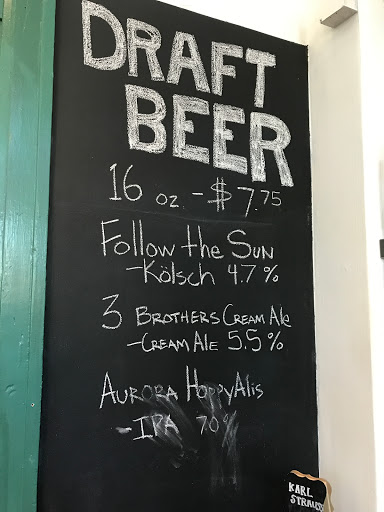 DRAFT
BEER
16 oz. - $7.75
Follow the Sun
- Kölsch 4.7%
3 BROTHERS CREAM Ale
- CREAM ALE 5.5%
AURORA HoppyAlis
- IPA 70%
KARL
STRAUSS